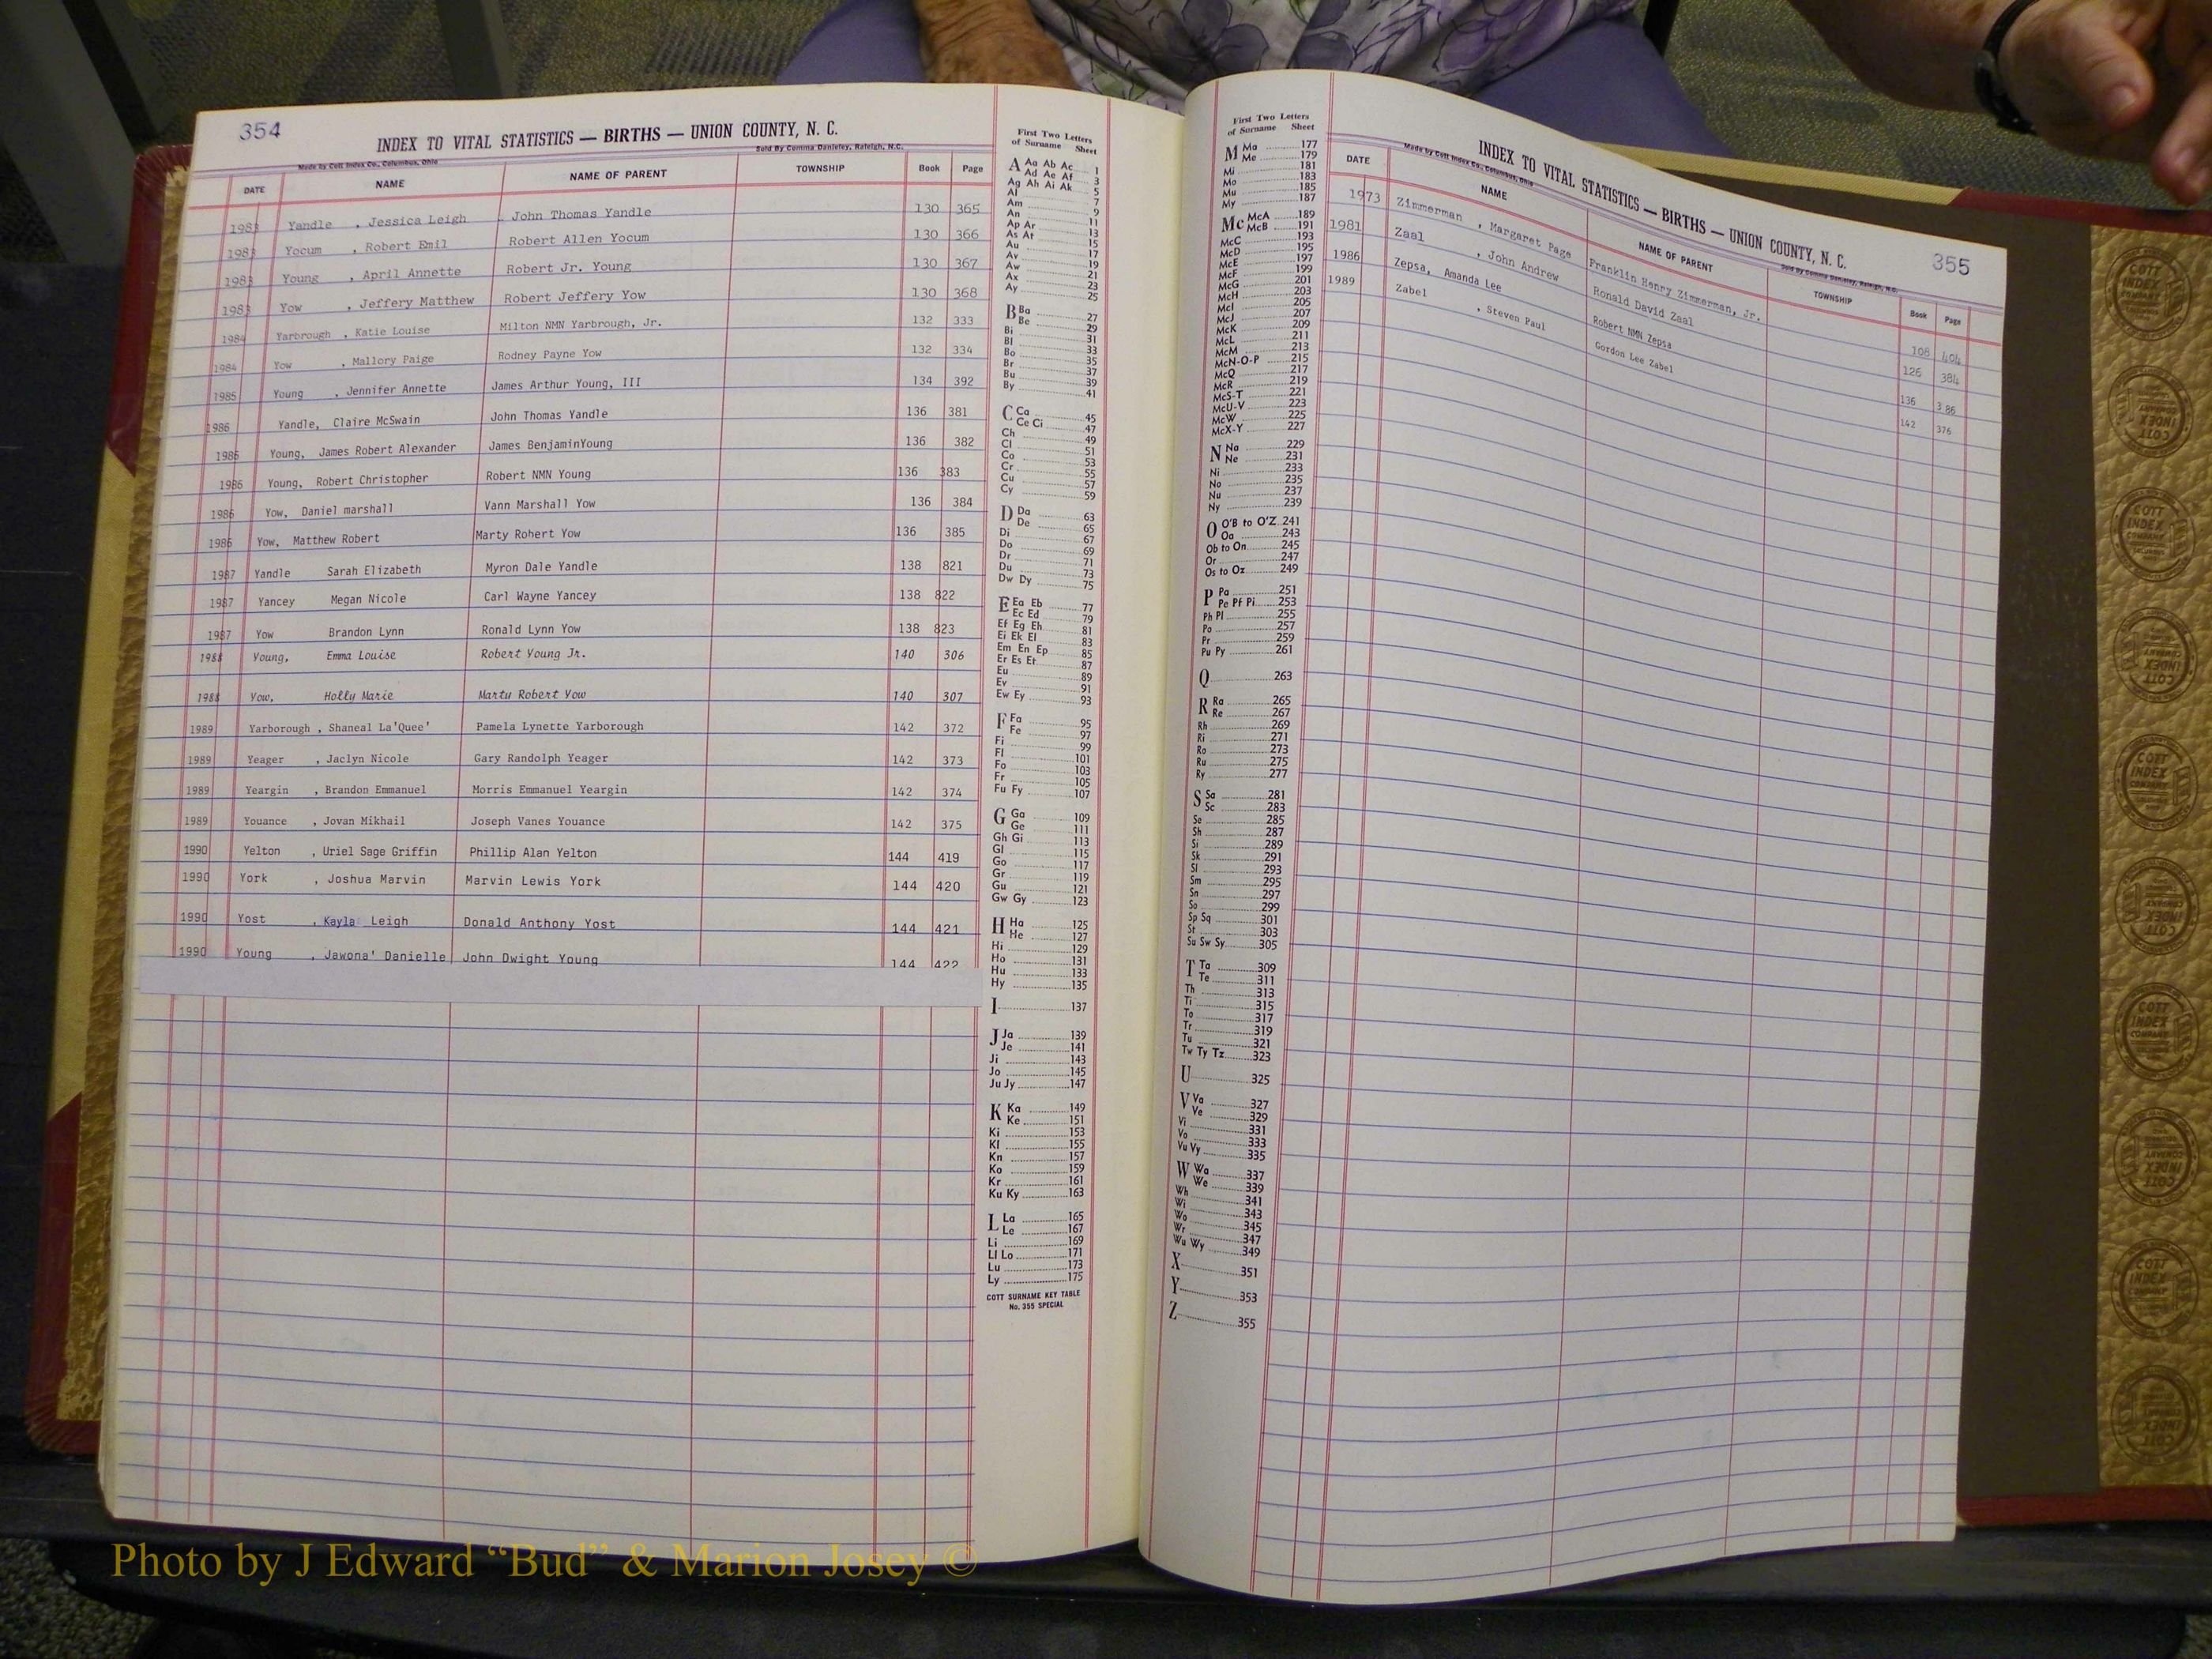 354
INDEX TO VITAL STATISTICS — BIRTHS — UNION COUNTY, N. C.
Made by Cott Index Co., Columbus, Ohio
Sold By Comma Danieley, Raleigh, N.C.
DATE NAME NAME OF PARENT TOWNSHIP Book Page
1983 Yandle , Jessica Leigh John Thomas Yandle 130 365
1983 Yocum , Robert Emil Robert Allen Yocum 130 366
1983 Young , April Annette Robert Jr. Young 130 367
1983 Yow , Jeffery Matthew Robert Jeffery Yow 130 368
1984 Yarbrough , Katie Louise Milton NMN Yarbrough, Jr. 132 333
1984 Yow , Mallory Paige Rodney Payne Yow 132 334
1985 Young , Jennifer Annette James Arthur Young, III 134 392
1986 Yandle, Claire McSwain John Thomas Yandle 136 381
1986 Young, James Robert Alexander James BenjaminYoung 136 382
1986 Young, Robert Christopher Robert NMN Young 136 383
1986 Yow, Daniel marshall Vann Marshall Yow 136 384
1986 Yow, Matthew Robert Marty Robert Yow 136 385
1987 Yandle Sarah Elizabeth Myron Dale Yandle 138 821
1987 Yancey Megan Nicole Carl Wayne Yancey 138 822
1987 Yow Brandon Lynn Ronald Lynn Yow 138 823
1988 Young, Emma Louise Robert Young Jr. 140 306
1988 Yow, Holly Marie Marty Robert Yow 140 307
1989 Yarborough , Shaneal La'Quee' Pamela Lynette Yarborough 142 372
1989 Yeager , Jaclyn Nicole Gary Randolph Yeager 142 373
1989 Yeargin , Brandon Emmanuel Morris Emmanuel Yeargin 142 374
1989 Youance , Jovan Mikhail Joseph Vanes Youance 142 375
1990 Yelton , Uriel Sage Griffin Phillip Alan Yelton 144 419
1990 York , Joshua Marvin Marvin Lewis York 144 420
1990 Yost , Kayla Leigh Donald Anthony Yost 144 421
1990 Young , Jawona' Danielle John Dwight Young 144 422
First Two Letters
of Surname Sheet
A Aa Ab Ac 1
Ad Ae Af 3
Ag Ah Ai Ak 5
Al 7
Am 9
An 11
Ap Ar 13
As At 15
Au 17
Av 19
Aw 21
Ax 23
Ay 25
B Ba 27
Be 29
Bi 31
Bl 33
Bo 35
Br 37
Bu 39
By 41
C Ca 45
Ce Ci 47
Ch 49
Cl 51
Co 53
Cr 55
Cu 57
Cy 59
D Da 63
De 65
Di 67
Do 69
Dr 71
Du 73
Dw Dy 75
E Ea Eb 77
Ec Ed 79
Ef Eg Eh 81
Ei Ek El 83
Em En Ep 85
Er Es Et 87
Eu 89
Ev 91
Ew Ey 93
F Fa 95
Fe 97
Fi 99
Fl 101
Fo 103
Fr 105
Fu Fy 107
G Ga 109
Ge 111
Gh Gi 113
Gl 115
Go 117
Gr 119
Gu 121
Gw Gy 123
H Ha 125
He 127
Hi 129
Ho 131
Hu 133
Hy 135
I 137
J Ja 139
Je 141
Ji 143
Jo 145
Ju Jy 147
K Ka 149
Ke 151
Ki 153
Kl 155
Kn 157
Ko 159
Kr 161
Ku Ky 163
L La 165
Le 167
Li 169
Ll Lo 171
Lu 173
Ly 175
COTT SURNAME KEY TABLE
No. 355 SPECIAL
First Two Letters
of Surname Sheet
M Ma 177
Me 179
Mi 181
Mo 183
Mu 185
My 187
Mc McA 189
McB 191
McC 193
McD 195
McE 197
McF 199
McG 201
McH 203
McI 205
McJ 207
McK 209
McL 211
McM 213
McN-O-P 215
McQ 217
McR 219
McS-T 221
McU-V 223
McW 225
McX-Y 227
N Na 229
Ne 231
Ni 233
No 235
Nu 237
Ny 239
O O'B to O'Z 241
Oa 243
Ob to On 245
Or 247
Os to Oz 249
P Pa 251
Pe Pf Pi 253
Ph Pl 255
Po 257
Pr 259
Pu Py 261
Q 263
R Ra 265
Re 267
Rh 269
Ri 271
Ro 273
Ru 275
Ry 277
S Sa 281
Sc 283
Se 285
Sh 287
Si 289
Sk 291
Sl 293
Sm 295
Sn 297
So 299
Sp Sq 301
St 303
Su Sw Sy 305
T Ta 309
Te 311
Th 313
Ti 315
To 317
Tr 319
Tu 321
Tw Ty Tz 323
U 325
V Va 327
Ve 329
Vi 331
Vo 333
Vu Vy 335
W Wa 337
We 339
Wh 341
Wi 343
Wo 345
Wr 347
Wu Wy 349
X 351
Y 353
Z 355
INDEX TO VITAL STATISTICS — BIRTHS — UNION COUNTY, N. C.
355
Made by Cott Index Co., Columbus, Ohio
Sold By Comma Danieley, Raleigh, N.C.
DATE NAME NAME OF PARENT TOWNSHIP Book Page
1973 Zimmerman , Margaret Page Franklin Henry Zimmerman, Jr. 108 404
1981 Zaal , John Andrew Ronald David Zaal 126 384
1986 Zepsa, Amanda Lee Robert NMN Zepsa 136 386
1989 Zabel , Steven Paul Gordon Lee Zabel 142 376
COTT
INDEX
COMPANY
Photo by J Edward “Bud” & Marion Josey ©